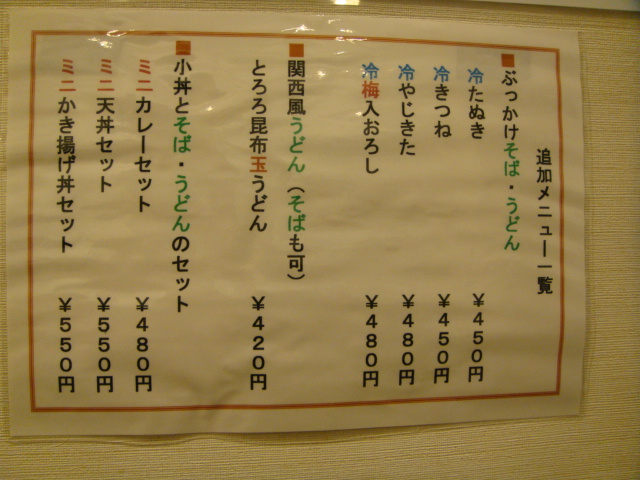 追加メニュー一覧
■ぶっかけそば・うどん
冷たぬき ￥４５０円
冷きつね ￥４５０円
冷やじきた ￥４８０円
冷梅入おろし ￥４８０円
■関西風うどん（そばも可）
とろろ昆布玉うどん ￥４２０円
■小丼とそば・うどんのセット
ミニカレーセット ￥４８０円
ミニ天丼セット ￥５５０円
ミニかき揚げ丼セット ￥５５０円